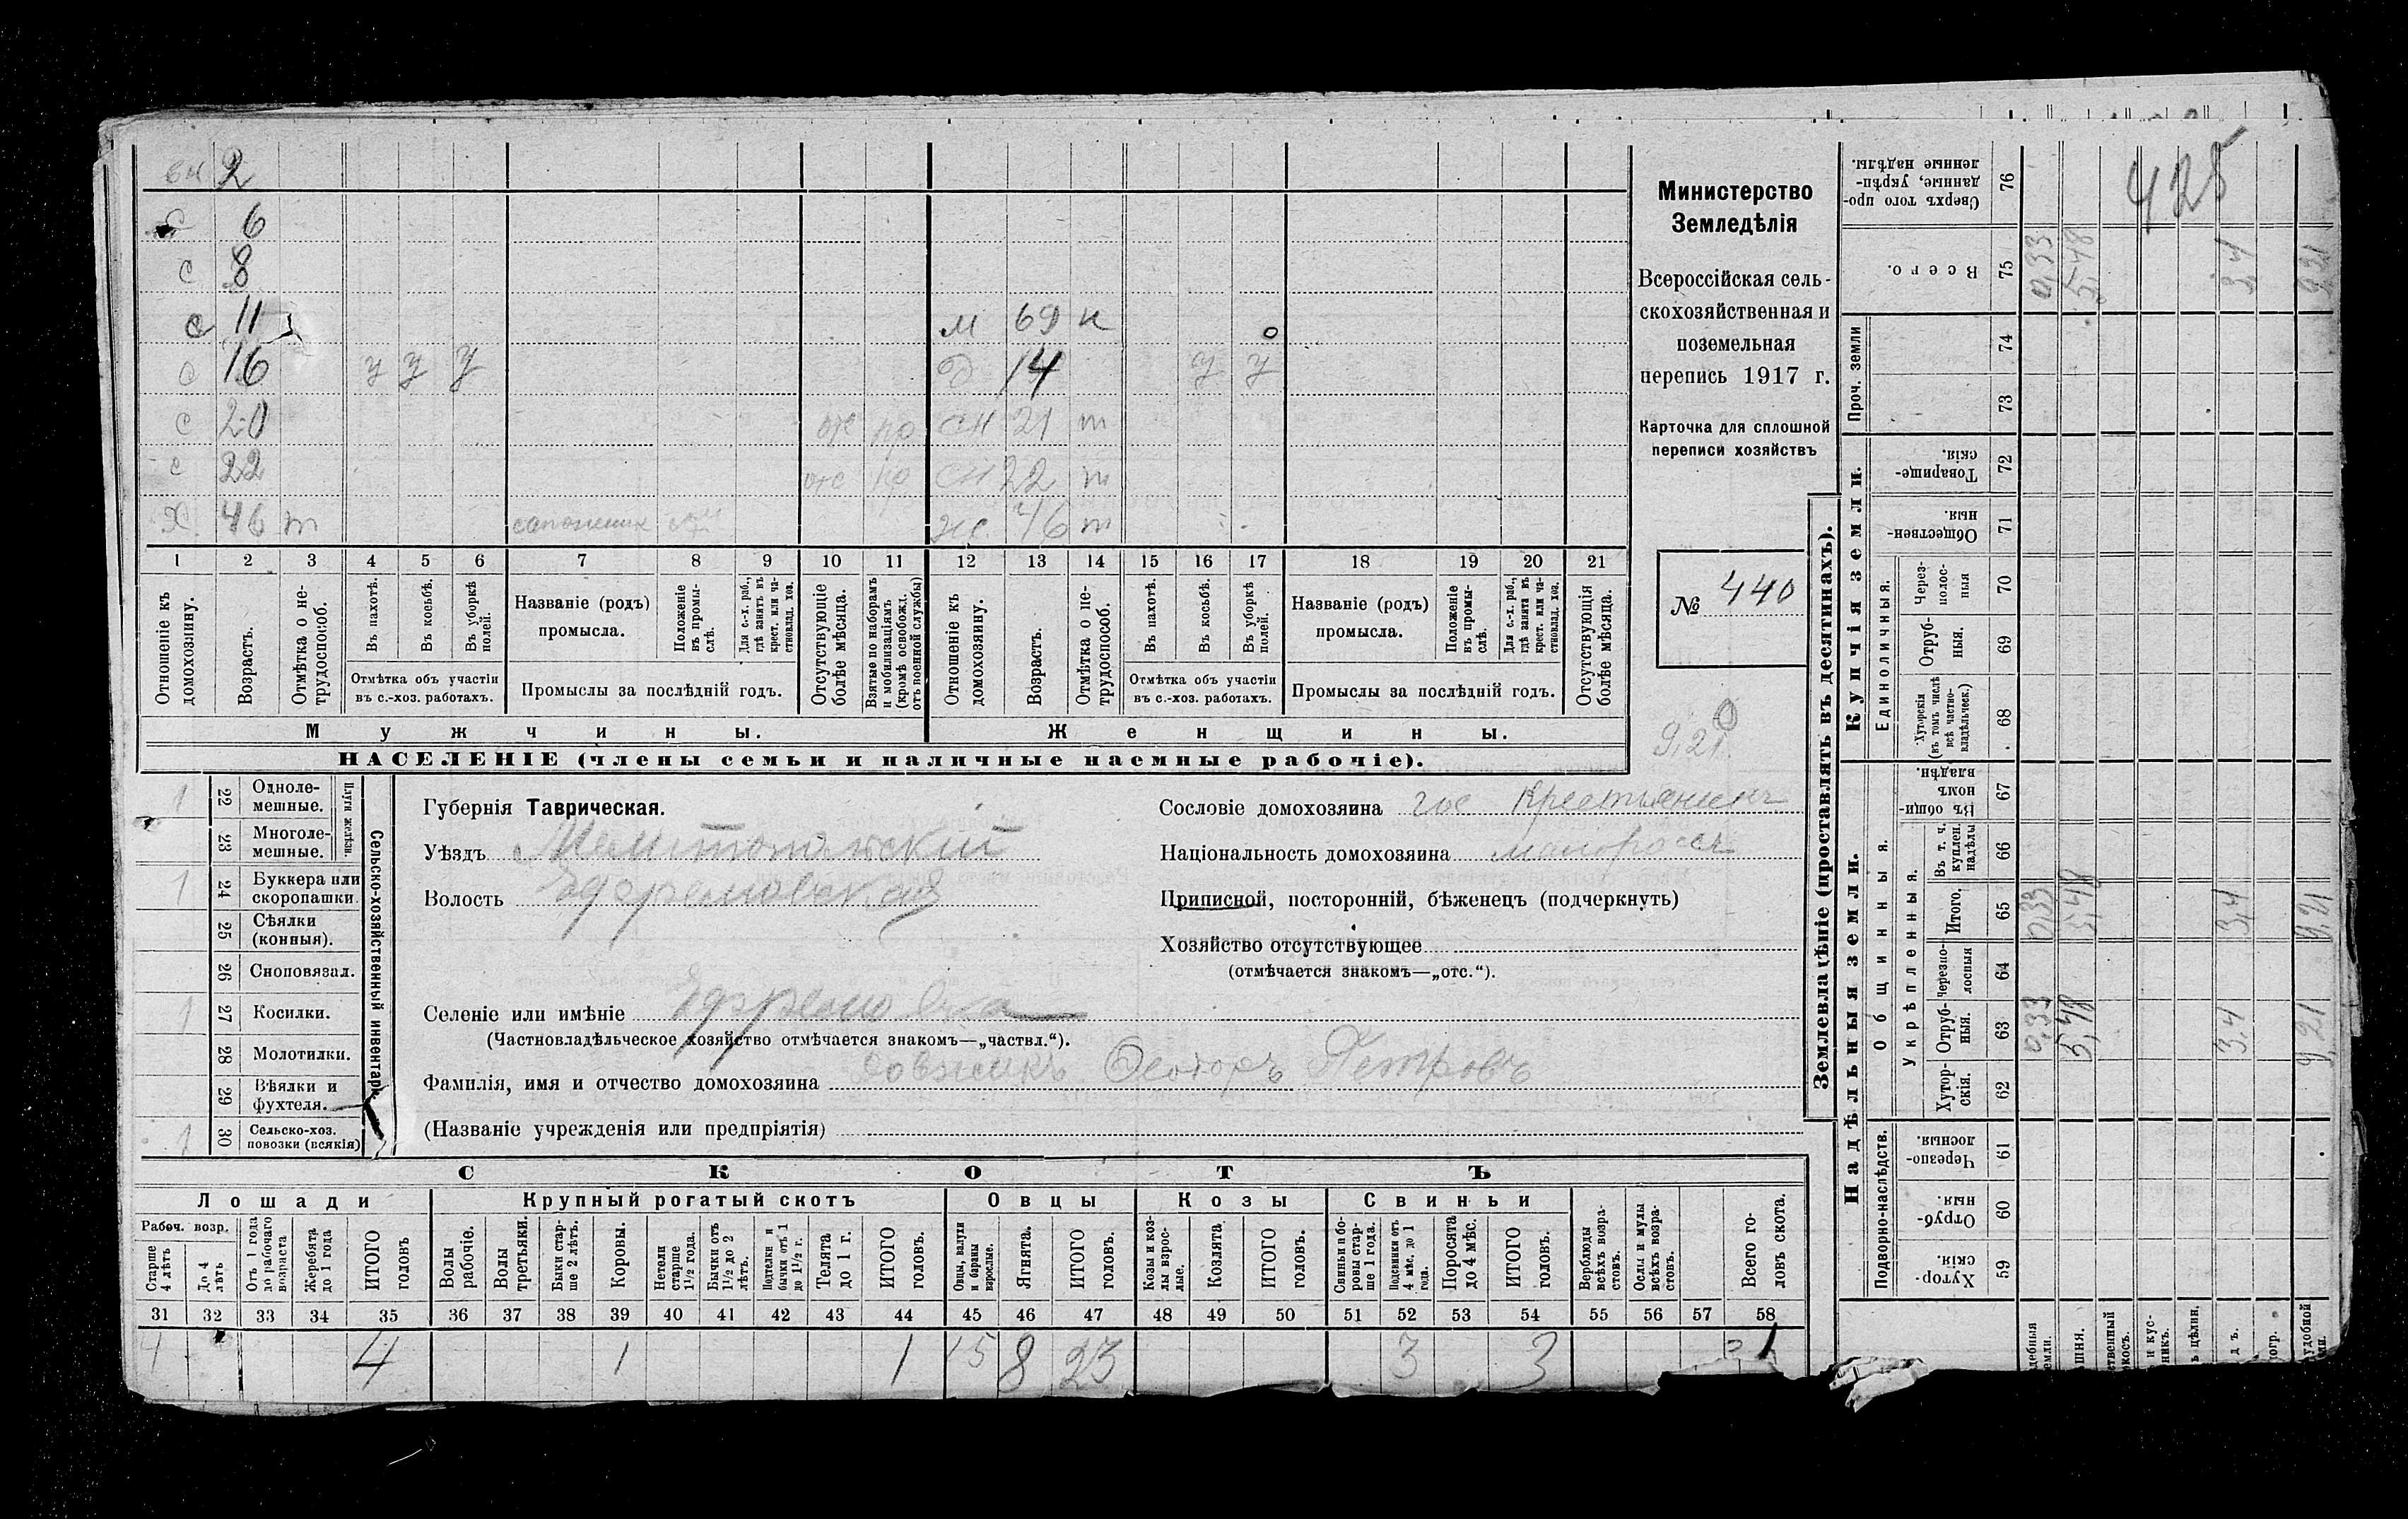 вн 2
с 6
с 8
с 11 м 69 н
с 16 у у у д 14 у у
с 20 отс пр сн 21 т
с 22 отс пр сн 22 т
Х 46 т сапожник ж 46 т
1 2 3 4 5 6 7 8 9 10 11 12 13 14 15 16 17 18 19 20 21
Отношеніе къ домохозяину.
Возрастъ.
Отмѣтка о нетрудоспособ.
Въ пахотѣ.
Въ косьбѣ.
Въ уборкѣ полей.
Отмѣтка объ участіи въ с.-хоз. работахъ.
Названіе (родъ) промысла.
Положеніе въ промыслѣ.
Для с.-х. раб., гдѣ занятъ въ крест. или частновлад. хоз.
Промыслы за послѣдній годъ.
Отсутствующіе болѣе мѣсяца.
Взятые по наборамъ и мобилизаціямъ (кромѣ освобожд. отъ военной службы)
Отношеніе къ домохозяину.
Возрастъ.
Отмѣтка о нетрудоспособ.
Въ пахотѣ.
Въ косьбѣ.
Въ уборкѣ полей.
Отмѣтка объ участіи въ с.-хоз. работахъ.
Названіе (родъ) промысла.
Положеніе въ промыслѣ.
Для с.-х. раб., гдѣ занята въ крест. или частновлад. хоз.
Промыслы за послѣдній годъ.
Отсутствующія болѣе мѣсяца.
Мужчины. Женщины.
НАСЕЛЕНІЕ (члены семьи и наличные наемные рабочіе).
Министерство
Земледѣлія
Всероссійская сель-
скохозяйственная и
поземельная
перепись 1917 г.
Карточка для сплошной
переписи хозяйствъ
№ 440
9,21
Сельско-хозяйственный инвентарь.
Плуги желѣзн.
1 22 Одноле-мешные.
23 Многоле-мешные.
1 24 Буккера или скоропашки
25 Сѣялки (конныя).
26 Сноповязал.
1 27 Косилки.
28 Молотилки.
29 Вѣялки и фухтеля.
1 30 Сельско-хоз. повозки (всякія)
Губернія Таврическая.
Уѣздъ Мелитопольскій
Волость Ефремовская
Селеніе или имѣніе Ефремовка
(Частновладѣльческое хозяйство отмѣчается знакомъ—„частвл.“).
Фамилія, имя и отчество домохозяина Довжикъ Ѳеодоръ Петровъ
(Названіе учрежденія или предпріятія)
Сословіе домохозяина гос крестьянинъ
Національность домохозяина малороссъ
Приписной, посторонній, бѣженецъ (подчеркнуть)
Хозяйство отсутствующее
(отмѣчается знакомъ—„отс.“).
СКОТЪ
Лошади Крупный рогатый скотъ Овцы Козы Свиньи
Рабоч. возр.
Старше 4 лѣтъ
До 4 лѣтъ
Отъ 1 года до рабочаго возраста
Жеребята до 1 года
ИТОГО головъ
Волы рабочіе.
Волы третьяки.
Быки старше 2 лѣтъ.
Коровы.
Нетели старше 1½ года.
Бычки отъ 1½ до 2 лѣтъ.
Подтелки и бычки отъ 1 до 1½ г.
Телята до 1 г.
ИТОГО головъ.
Овцы, валухи и бараны взрослые.
Ягнята.
ИТОГО головъ.
Козы и козлы взрослые.
Козлята
ИТОГО головъ.
Свиньи и боровы старше 1 года.
Подсвинки отъ 4 мѣс. до 1 года.
Поросята до 4 мѣс.
ИТОГО головъ.
Верблюды всѣхъ возрастовъ.
Ослы и мулы всѣхъ возрастовъ.
Всего головъ скота.
31 32 33 34 35 36 37 38 39 40 41 42 43 44 45 46 47 48 49 50 51 52 53 54 55 56 57 58
4 4 1 1 15 8 23 3 3 1
Землевладѣніе (проставлять въ десятинахъ).
425
Сверхъ того проданные, укрѣпленные надѣлы. 76
Всего. 75 0,33 5,48 3,4 9,21
Проч. земли 74
73
Купчія земли.
Товарищескія. 72
Общественныя. 71
Единоличныя.
Черезполосныя 70
Отрубныя. 69
Хуторскія (въ томъ числѣ всѣ частновладѣльческ.) 68
Надѣльныя земли.
Общинныя.
Въ общинномъ владѣн. 67
Укрѣпленныя.
Въ т. ч. куплен. надѣлы 66
Итого. 65 0,33 5,48 3,4 9,21
Черезполосныя 64
Отрубныя. 63 0,33 5,48 3,4 9,21
Хуторскія. 62
Подворно-наслѣдств.
Черезполосныя. 61
Отрубныя. 60
Хуторскія. 59